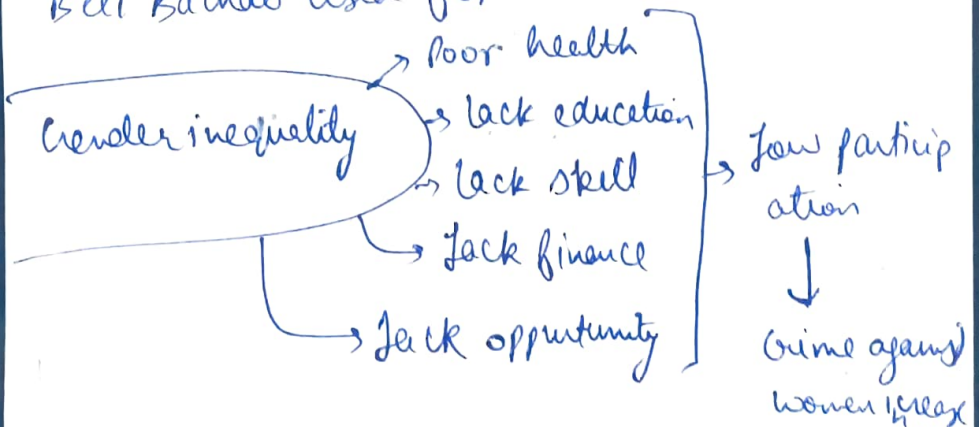 Poor health
Gender inequality
lack education
lack skill
lack finance
lack oppurtunity
low particip
ation
Crime against
women increase